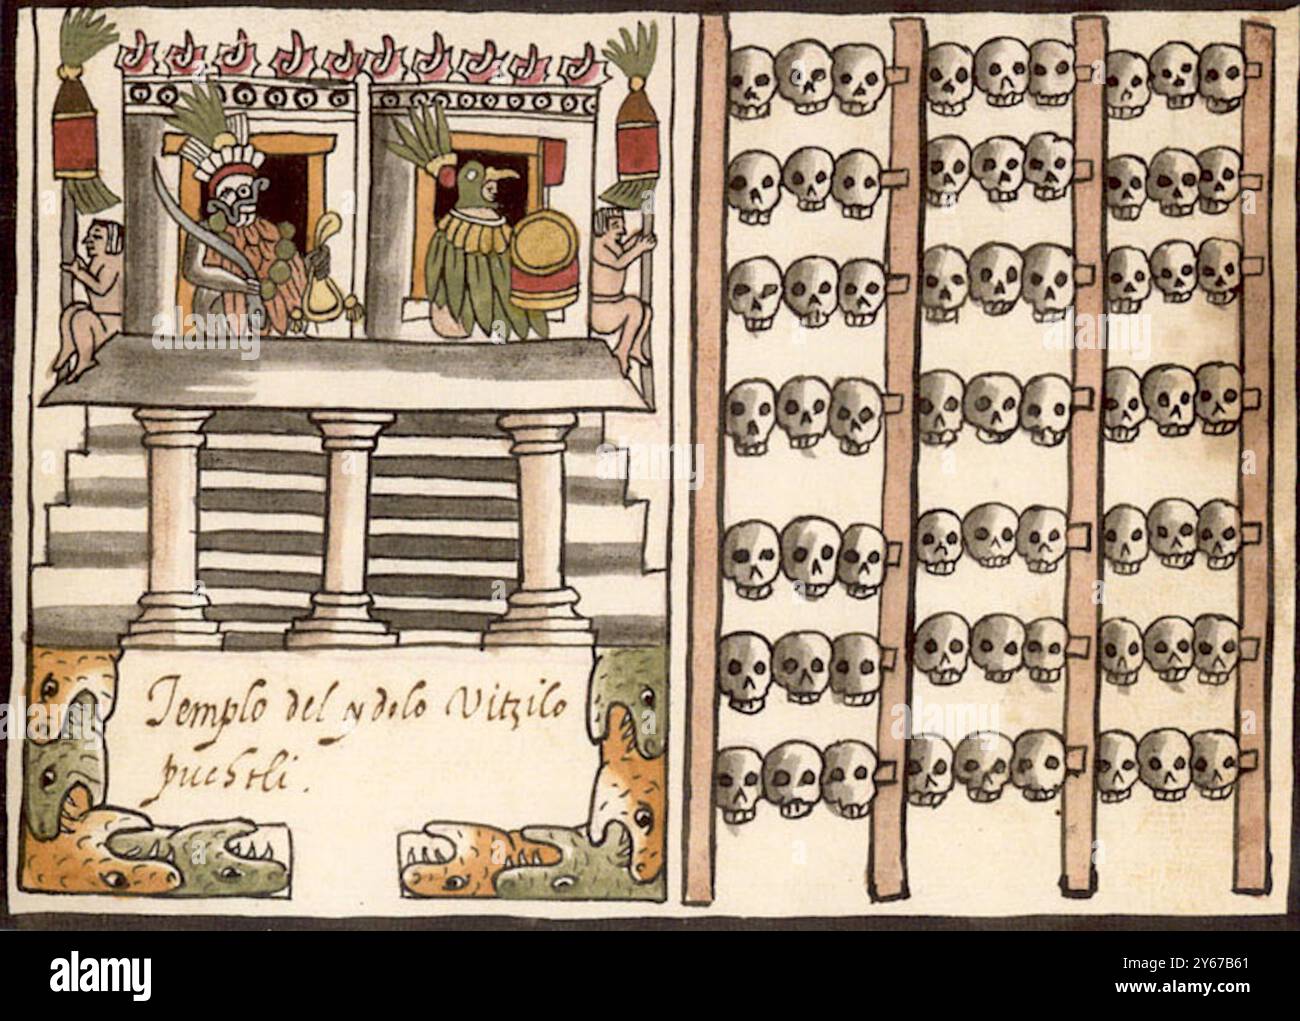 Templo del ydolo Vitzilo
puchtli.
alamy
Image ID: 2Y67B61
www.alamy.com